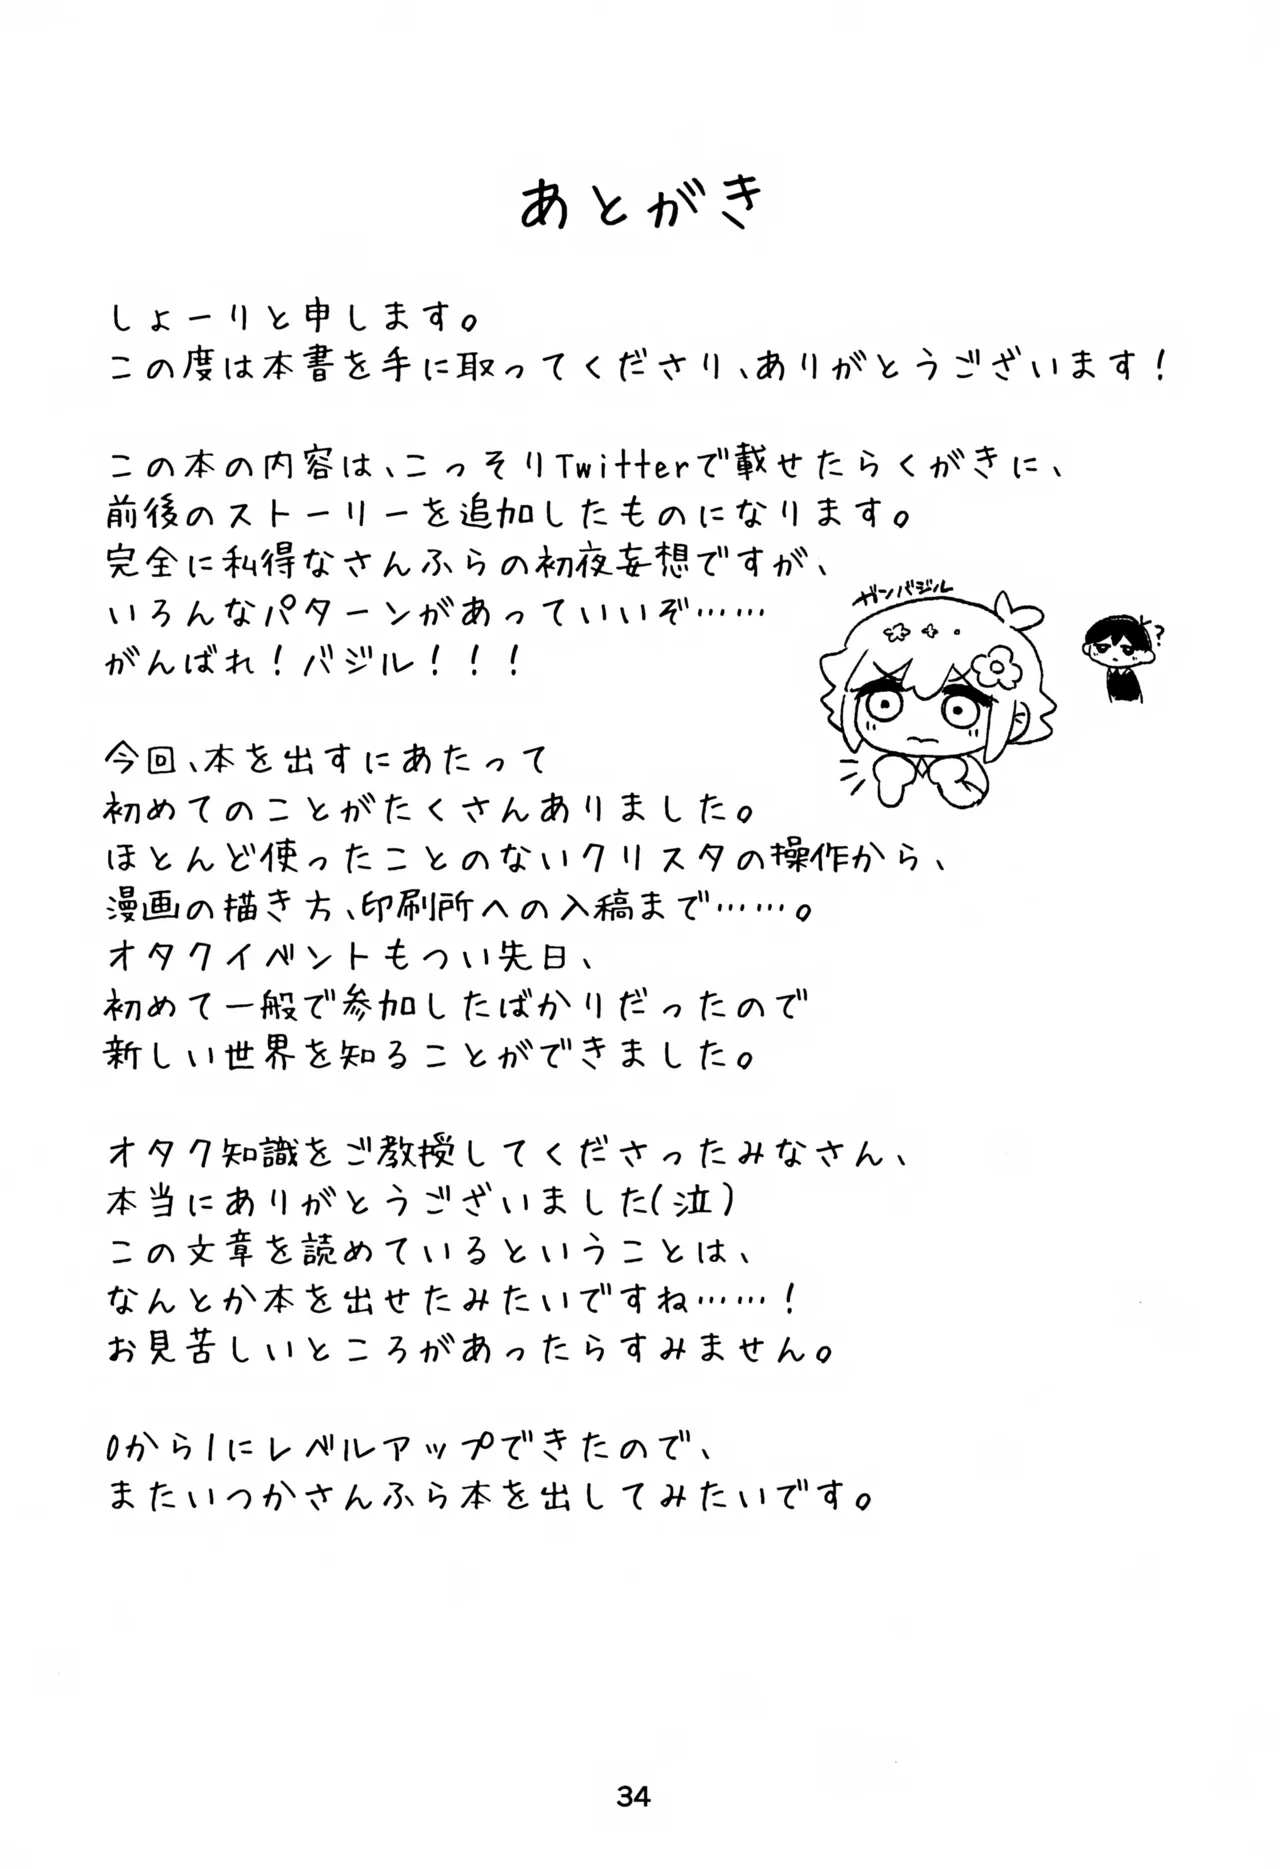 あとがき
しょーりと申します。
この度は本書を手に取ってくださり、ありがとうございます！
この本の内容は、こっそりTwitterで載せたらくがきに、
前後のストーリーを追加したものになります。
完全に私得なさんふらの初夜妄想ですが、
いろんなパターンがあっていいぞ……
がんばれ！バジル！！！
ガンバジル
?
今回、本を出すにあたって
初めてのことがたくさんありました。
ほとんど使ったことのないクリスタの操作から、
漫画の描き方、印刷所への入稿まで……。
オタクイベントもつい先日、
初めて一般で参加したばかりだったので
新しい世界を知ることができました。
オタク知識をご教授してくださったみなさん、
本当にありがとうございました(泣)
この文章を読めているということは、
なんとか本を出せたみたいですね……！
お見苦しいところがあったらすみません。
0から1にレベルアップできたので、
またいつかさんふら本を出してみたいです。
34